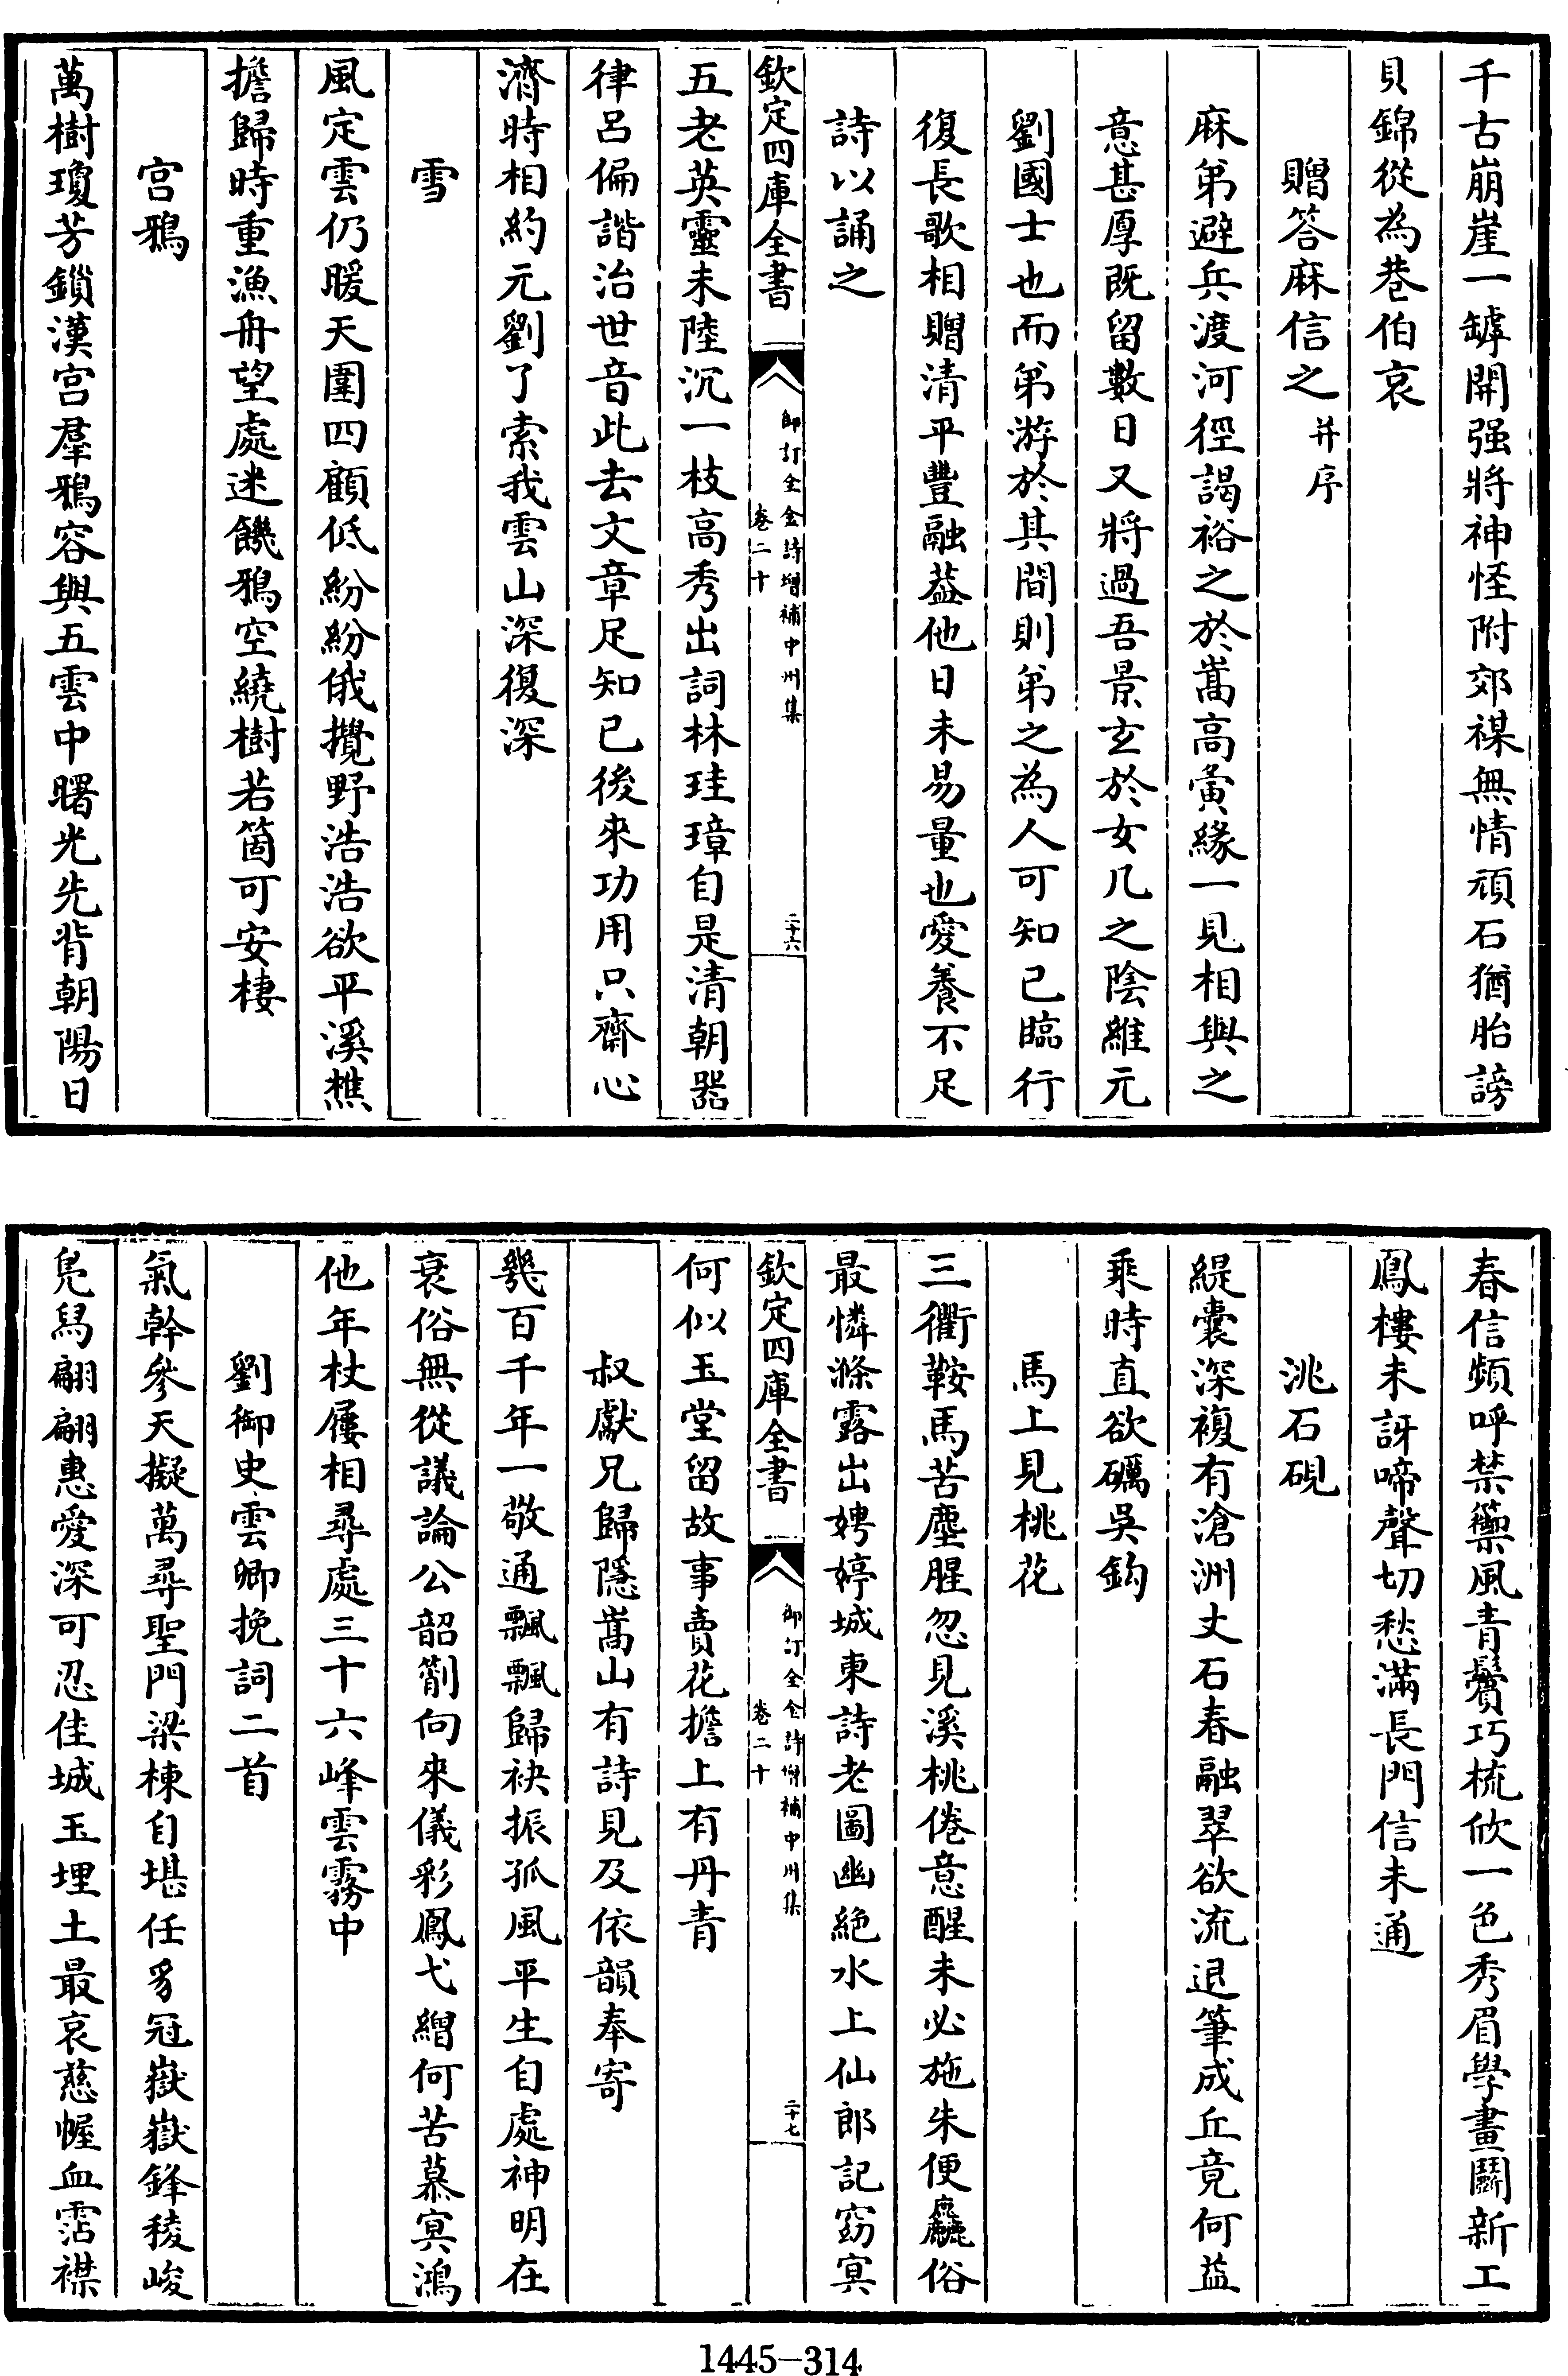 千古崩崖一罅開强將神怪附郊禖無情頑石猶胎謗
貝錦從為巷伯哀
贈答麻信之并序
麻弟避兵渡河徑謁裕之於嵩高夤緣一見相與之
意甚厚既留數日又將過吾景玄於女几之陰維元
劉國士也而弟游於其間則弟之為人可知已臨行
復長歌相贈清平豐融葢他日未易量也愛養不足
詩以誦之
欽定四庫全書
御訂全金詩增補中州集
卷二十
二十六
五老英靈未陸沉一枝高秀出詞林珪璋自是清朝器
律呂偏諧治世音此去文章足知已後來功用只齋心
濟時相約元劉了索我雲山深復深
雪
風定雲仍暖天圍四顧低紛紛俄攪野浩浩欲平溪樵
擔歸時重漁舟望處迷饑鴉空繞樹若箇可安棲
宫鴉
萬樹瓊芳鎻漢宫羣鴉容與五雲中曙光先背朝陽日
春信頻呼禁籞風青鬢巧梳欣一色秀眉學畫鬬新工
鳳樓未訝啼聲切愁滿長門信未通
洮石硯
緹囊深複有滄洲丈石春融翠欲流退筆成丘竟何益
乘時直欲礪吳鈎
馬上見桃花
三衢鞍馬苦塵腥忽見溪桃倦意醒未必施朱便麤俗
最憐滌露出娉婷城東詩老圖幽絶水上仙郎記窈冥
欽定四庫全書
御訂全金詩增補中州集
卷二十
二十七
何似玉堂留故事賣花擔上有丹青
叔獻兄歸隱嵩山有詩見及依韻奉寄
幾百千年一敬通飄飄歸袂振孤風平生自處神明在
衰俗無從議論公韶箾向來儀彩鳳弋繒何苦慕冥鴻
他年杖屨相尋處三十六峰雲霧中
劉御史雲卿挽詞二首
氣幹參天擬萬尋聖門梁棟自堪任豸冠嶽嶽鋒稜峻
鳬舄翩翩惠愛深可忍佳城玉埋土最哀慈幄血霑襟
1445-314